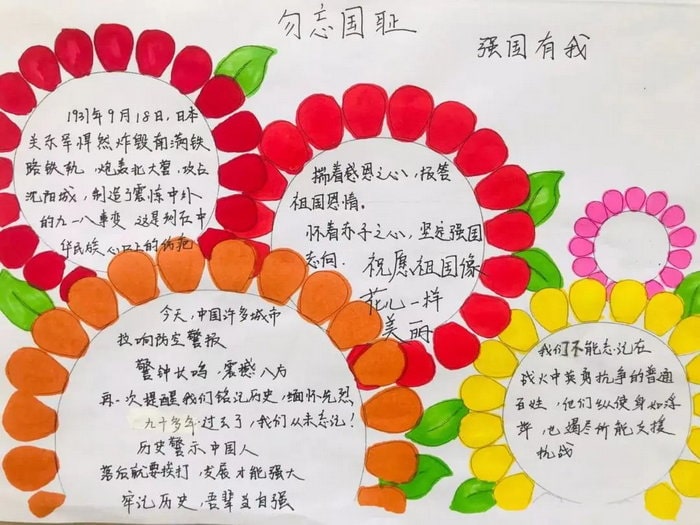 勿忘国耻
强国有我
1931年9月18日,日本
关东军悍然炸毁南满铁
路铁轨,炮轰北大营,攻占
沈阳城,制造了震惊中外
的九一八事变 这是刻在中
华民族心口上的伤疤
揣着感恩之心,报答
祖国恩情。
怀着赤子之心,坚定强国
志向.
祝愿祖国像
花儿一样
美丽
今天,中国许多城市
拉响防空警报
警钟长鸣,震撼八方
再一次提醒我们铭记历史,缅怀先烈
九十多年过去了,我们从未忘记!
历史警示中国人
落后就要挨打,发展才能强大
牢记历史,吾辈当自强
我们不能忘记在
战火中英勇抗争的普通
百姓,他们纵使身如浮
萍,也竭尽所能支援
抗战